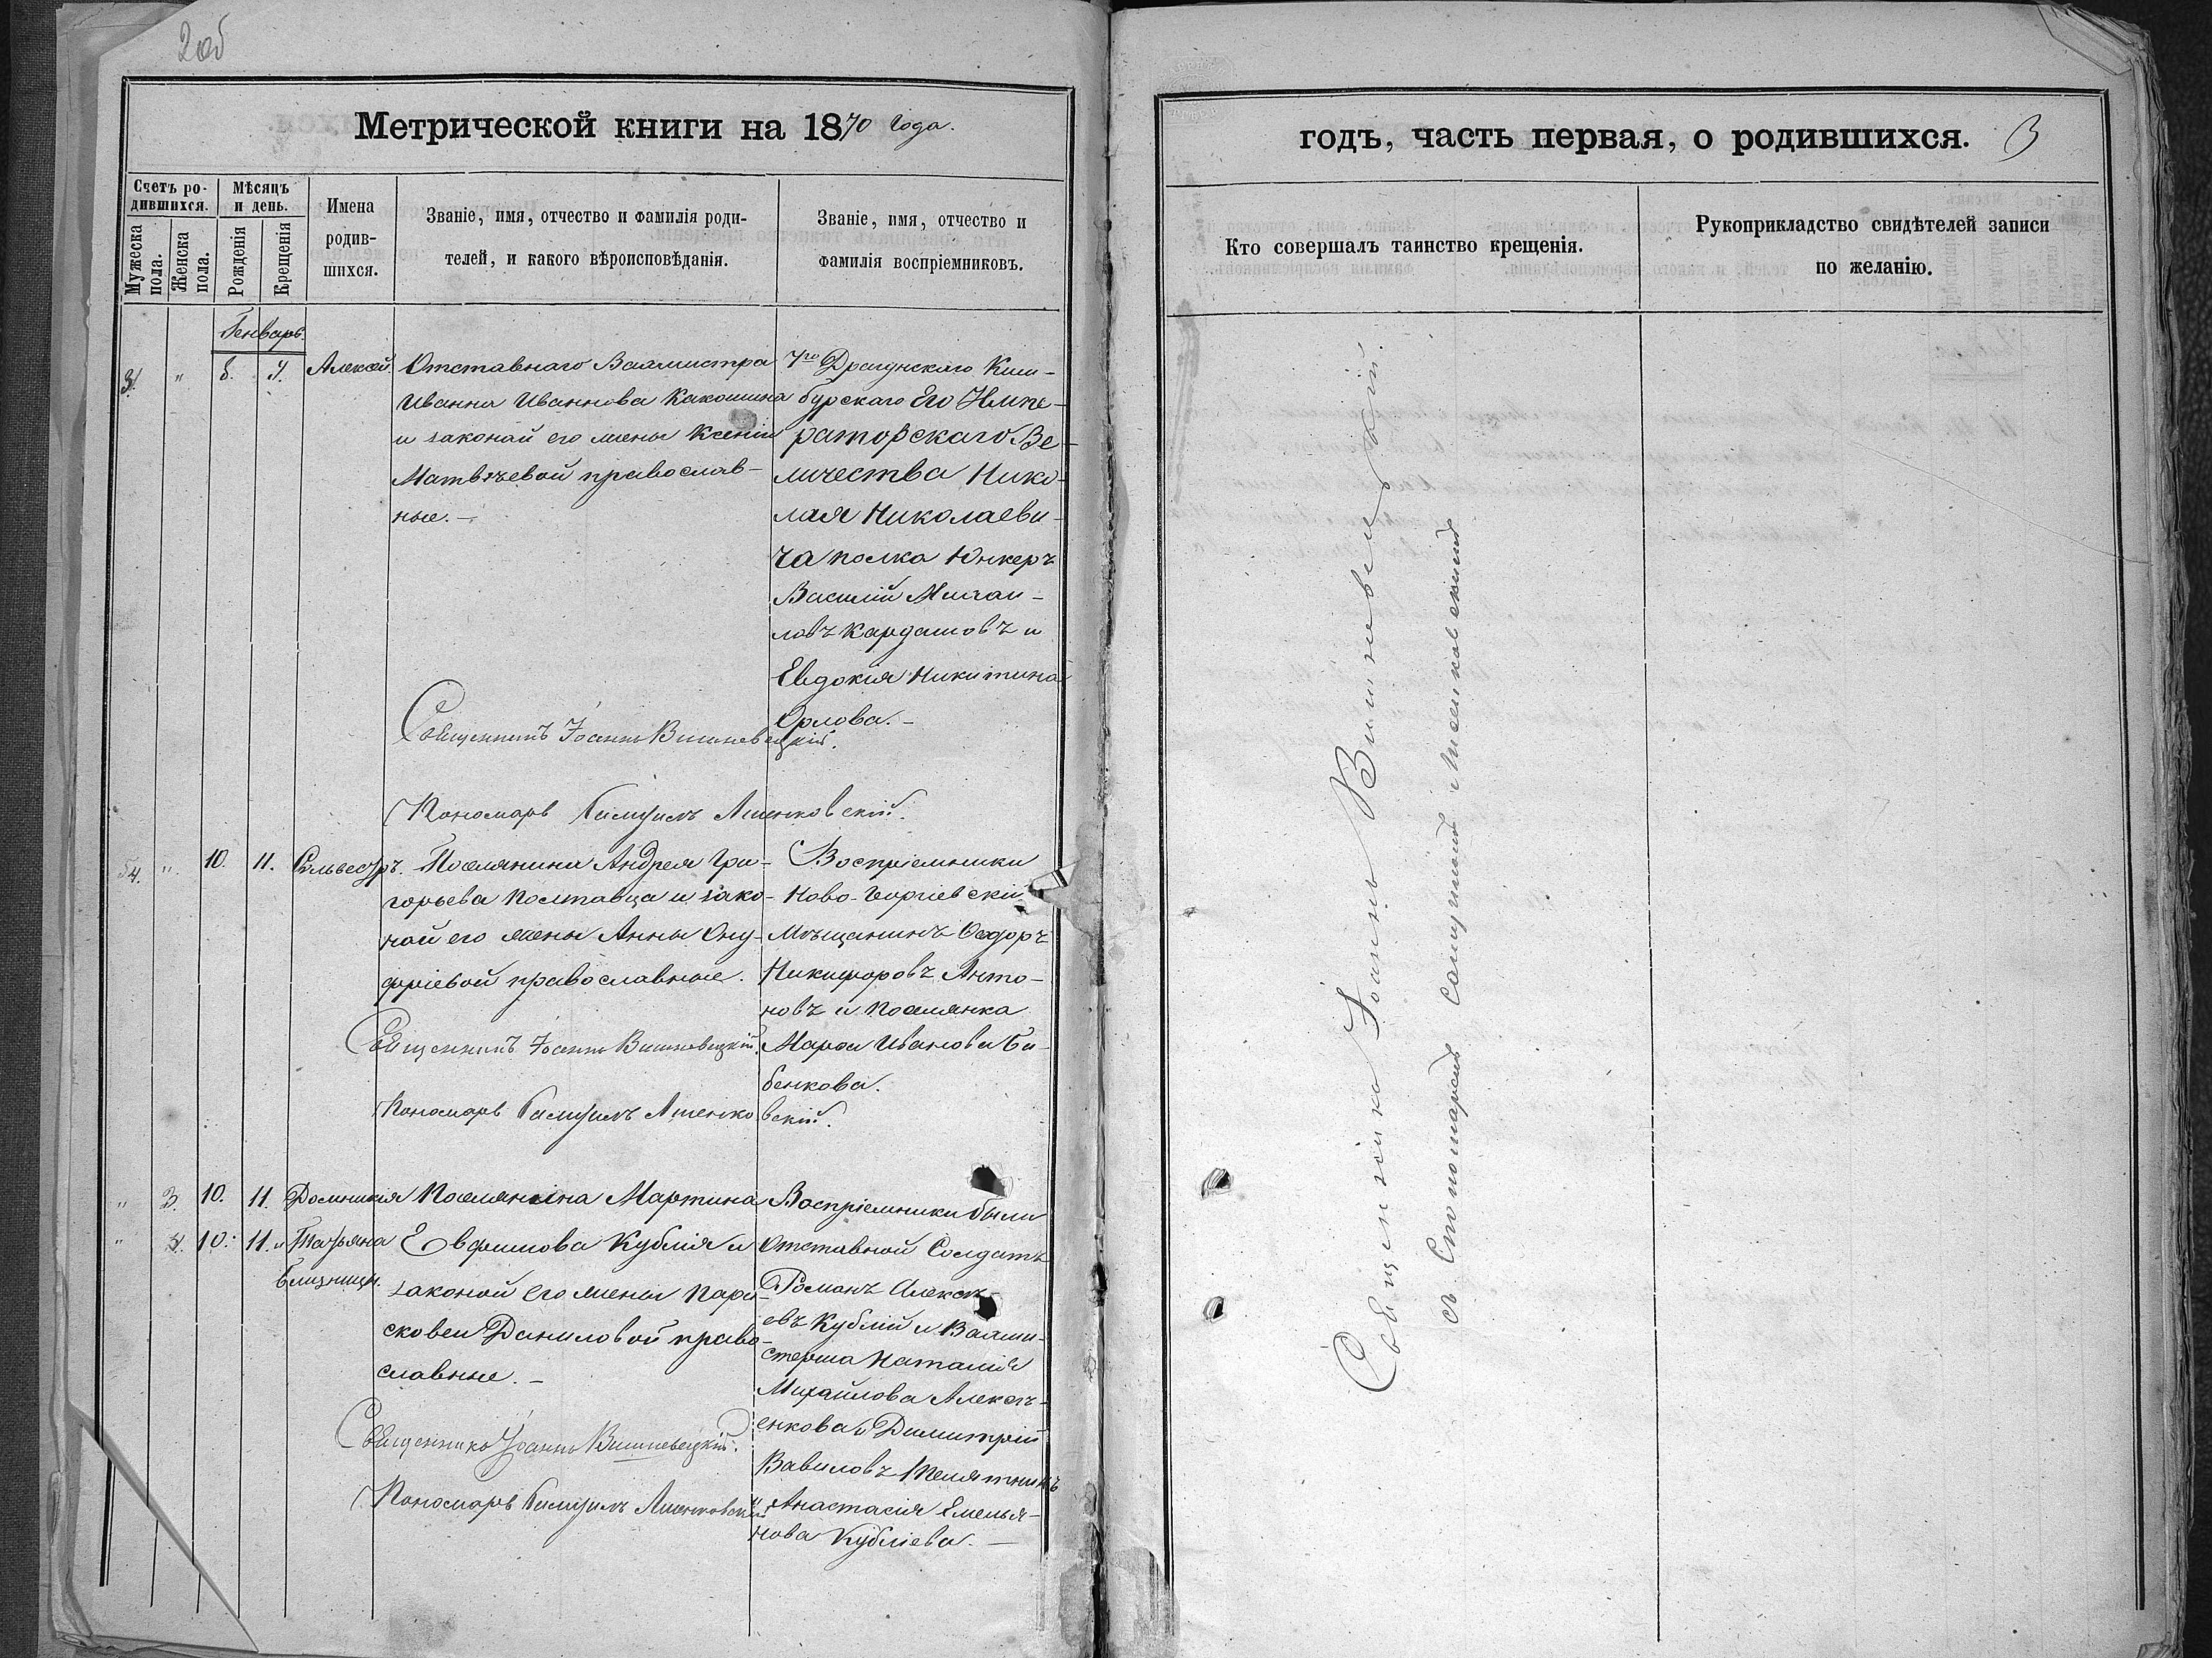 2об
Метрической книги на 1870 года.
Счетъ ро-
дившихся.
Мужеска
пола.
Женска
пола.
Мѣсяцъ
и день.
Рожденія
Крещенія
Имена
родив-
шихся.
Званіе, имя, отчество и фамилія роди-
телей, и какого вѣроисповѣданія.
Званіе, имя, отчество и
фамилія воспріемниковъ.
Генварь
3. " 8. 9. Алексѣй.
Отставнаго Вахмистра
Иванна Иваннова Какошина
и законай его жены Ксеніи
Матвѣевой православ-
ные.-
7го Драгунскаго Кин-
бурскаго Его Импе-
раторскаго Ве-
личества Нико-
лая Николаеви-
ча полка Юнкеръ
Василій Михаи-
ловъ Кардашовъ и
Евдокія Никитина
Орлова.-
Священникъ Іоаннъ Вишневецкій.
Пономарь
4. " 10. 11. Сильвестръ.
Поселянина Андрея Гри-
горьева Полтавца и зако-
ной его жены Анны Ону-
фріевой православные.
Воспріемники
Ново-Георгіевскій
Мѣщанинъ Ѳедоръ
Никифоровъ Анто-
новъ и поселянка
Марѳа Иванова Ба-
бенкова.
Священникъ Іоаннъ Вишневецкій.
Пономарь
" 3. 10. 11. Домникія
" 4. 10. 11. и Татьяна
близницы.
Поселянина Мартина
Евфимова Кублія и
законой его жены Пара-
сковеи Даниловой право-
славные.-
Воспріемники были
Отставной Солдатъ
Романъ Алексѣ-
евъ Кублій и Вахми-
стерша Наталія
Михайлова Алексѣ-
енкова и Димитрій
Вавиловъ Телятникъ
и Анастасія Емелья-
нова Кубліева.-
Священникъ Іоаннъ Вишневецкій.
Пономарь
годъ, часть первая, о родившихся. 3
Кто совершалъ таинство крещенія.
Рукоприкладство свидѣтелей записи
по желанію.
Священника Іоаннъ Вишневецкій.
съ пономаремъ